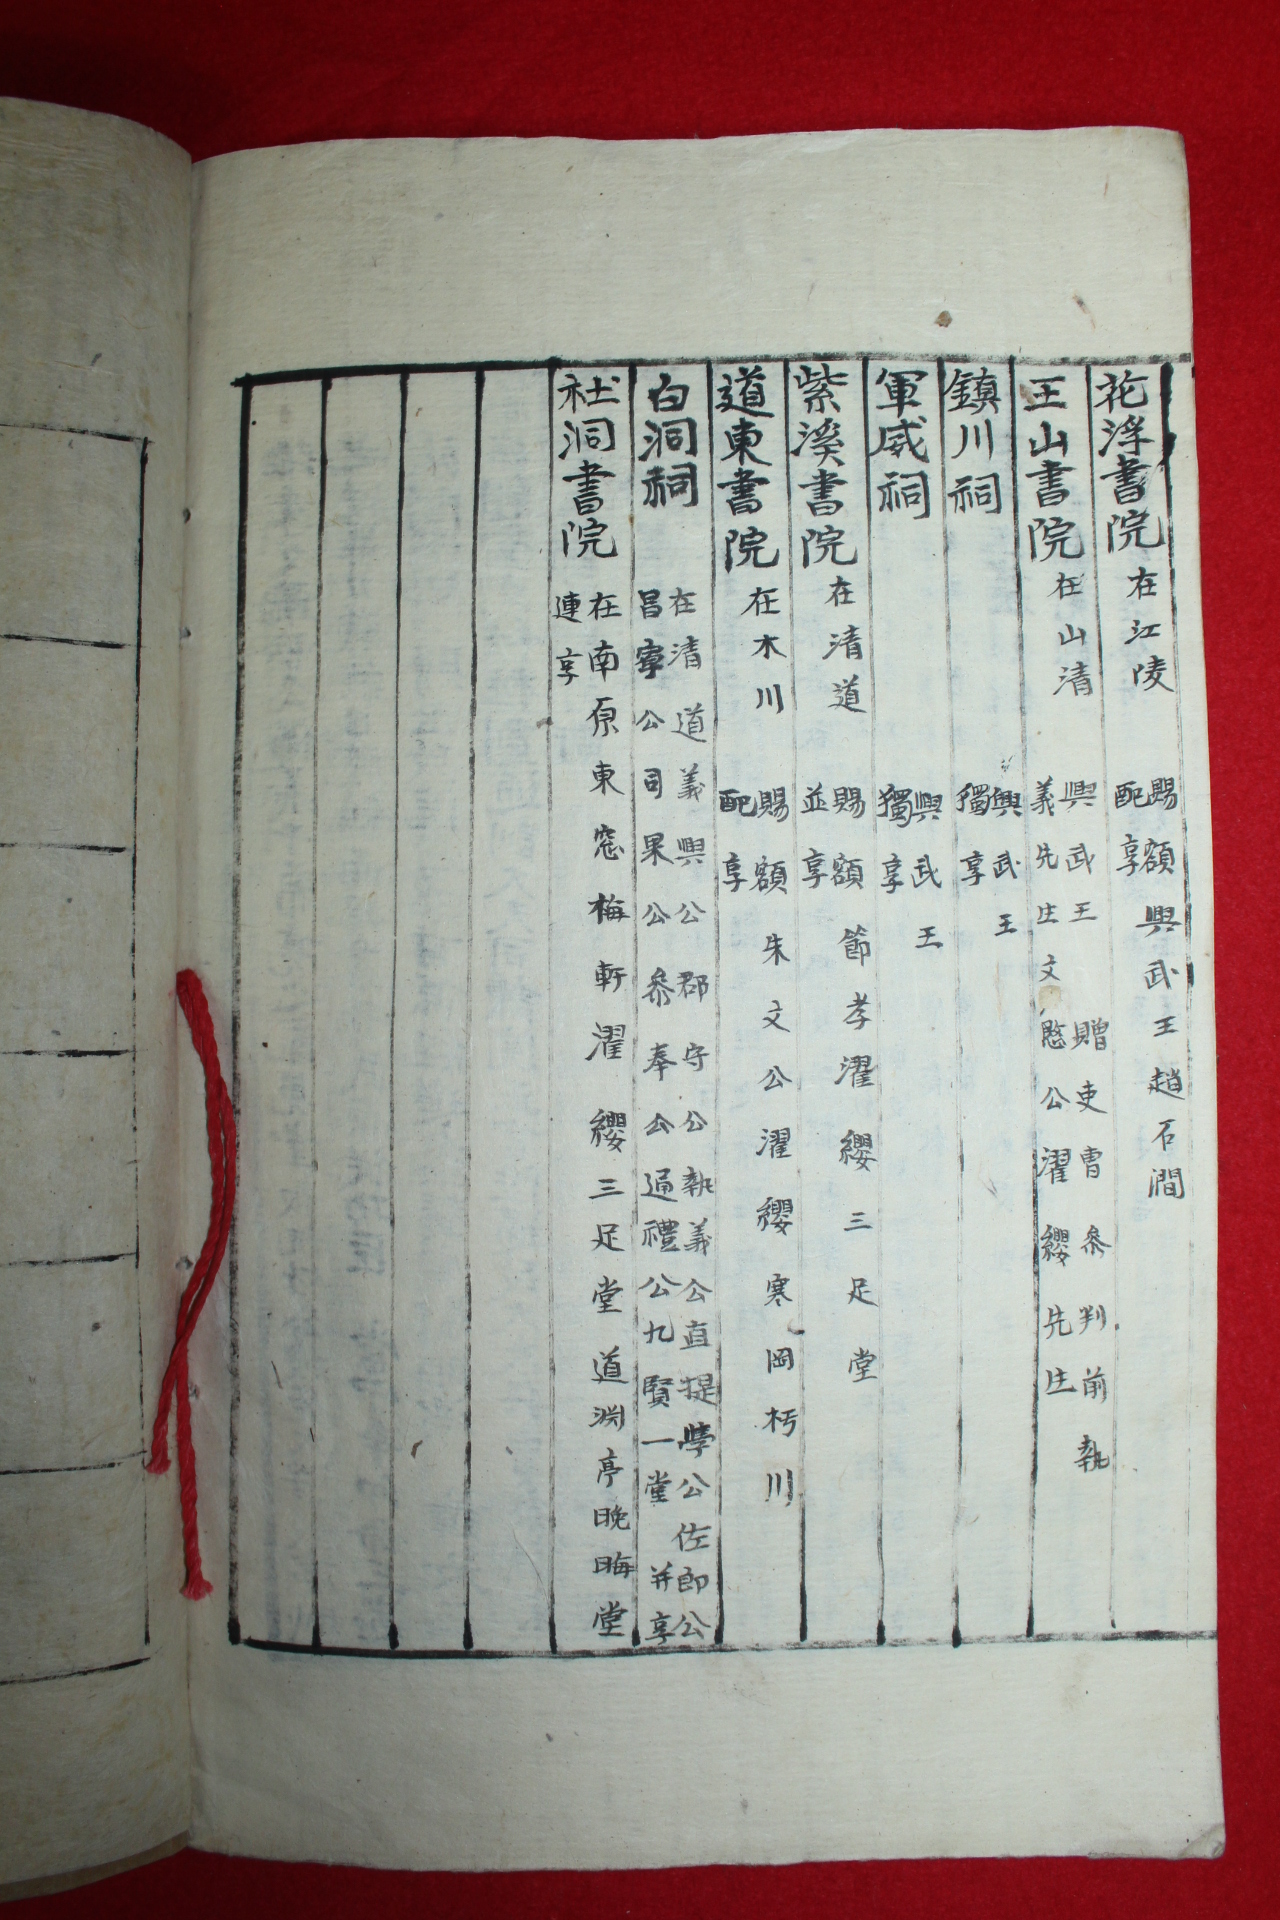 花浮書院 在江陵 賜額 興武王 趙石澗
配享
王山書院 在山清 興武王 贈吏曹參判前執
義先生 文愍公濯纓先生
鎮川祠 興武王
獨享
軍威祠 興武王
獨享
紫溪書院 在清道 賜額 節孝 濯纓 三足堂
並享
道東書院 在木川 賜額 朱文公 濯纓 寒岡 朽川
配享
白洞祠 在清道 義興公 郡守公 執義公 直提學公 佐郎公
昌寧公 司果公 參奉公 通禮公 九賢一堂 并享
社洞書院 在南原 東窓 梅軒 濯纓 三足堂 道淵亭 晚晦堂
連享